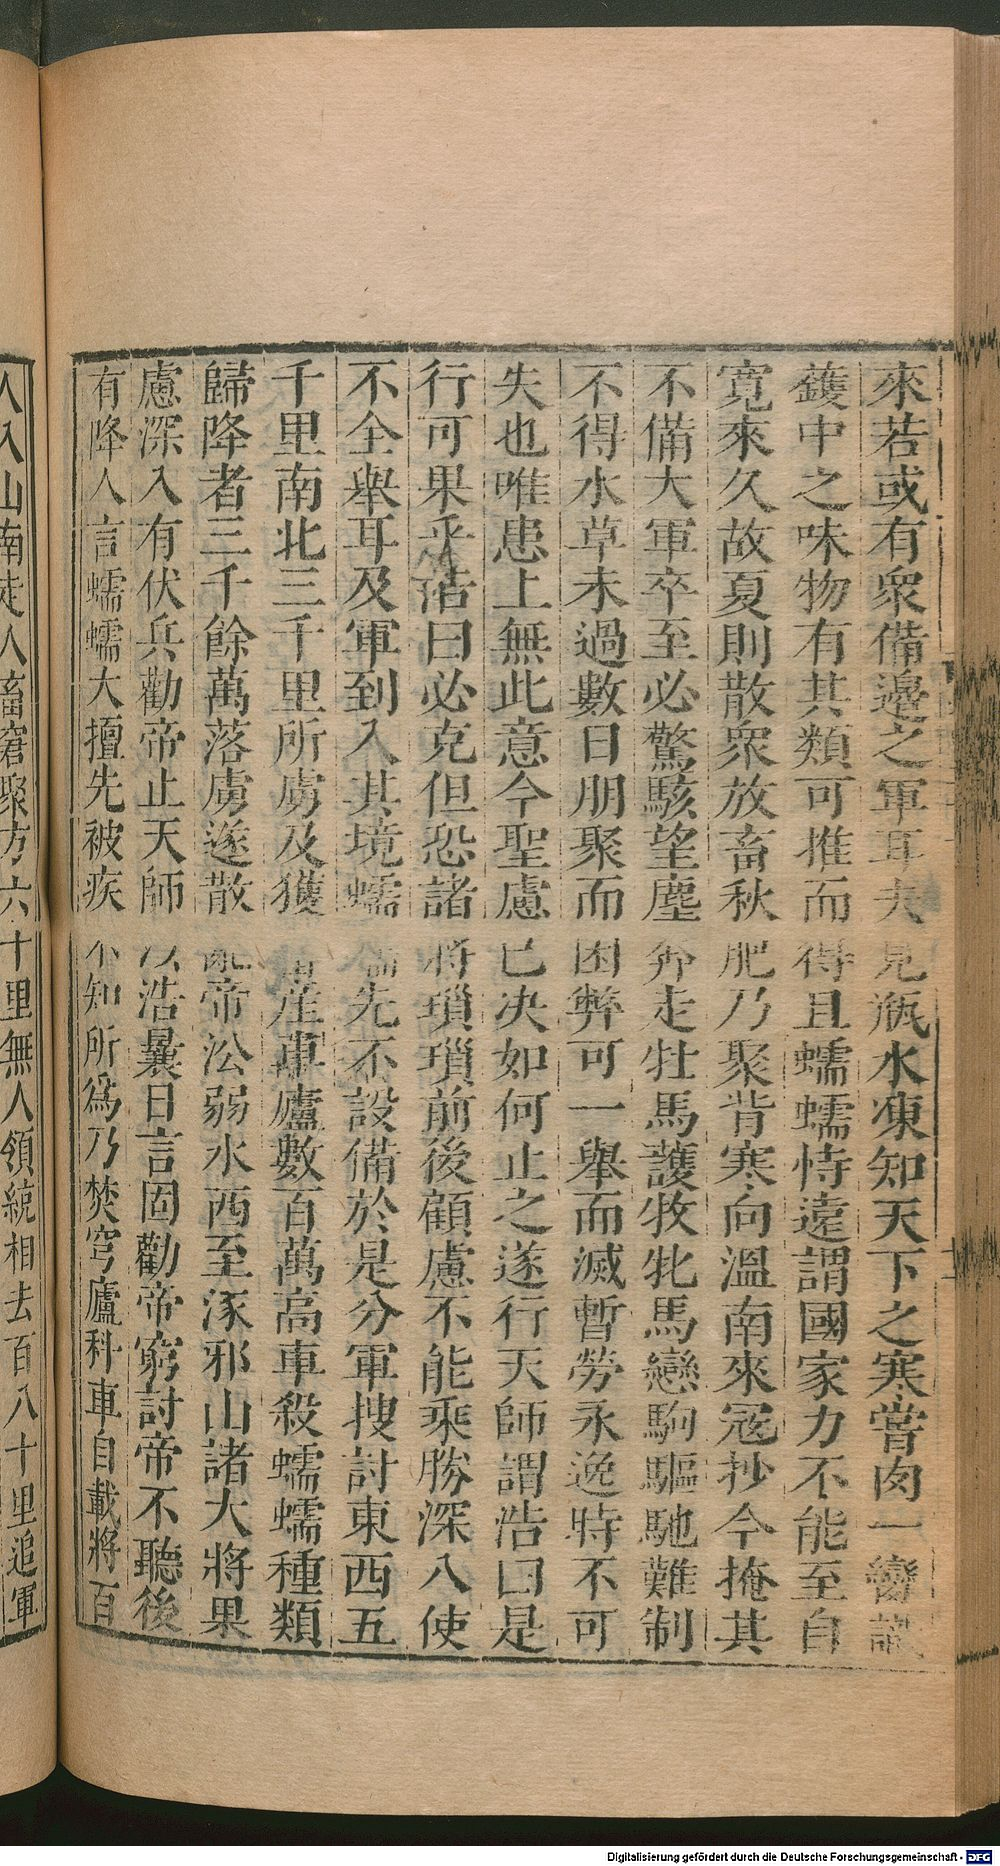 來若或有衆備邊之軍耳夫見瓶水凍知天下之寒嘗肉一臠識
鑊中之味物有其類可推而得且蠕蠕恃遠謂國家力不能至自
寬來久故夏則散衆放畜秋肥乃聚背寒向溫南來冦抄今掩其
不備大軍卒至必驚駭望塵奔走牡馬護牧牝馬戀駒驅馳難制
不得水草未過數日朋聚而困弊可一舉而滅暫勞永逸時不可
失也唯患上無此意今聖慮已决如何止之遂行天師謂浩曰是
行可果乎浩曰必克但恐諸將瑣瑣前後顧慮不能乘勝深入使
不全舉耳及軍到入其境蠕蠕先不設備於是分軍搜討東西五
千里南北三千里所虜及獲畜産車廬數百萬高車殺蠕蠕種類
歸降者三千餘萬落虜遂散亂帝㳂弱水西至涿邪山諸大將果
慮深入有伏兵勸帝止天師以浩曩日言固勸帝窮討帝不聽後
有降人言蠕蠕大擅先被疾不知所爲乃焚穹廬科車自載將百
人入山南走人畜窘聚方六十里無人領統相去百八十里追軍
Digitalisierung gefördert durch die Deutsche Forschungsgemeinschaft - DFG